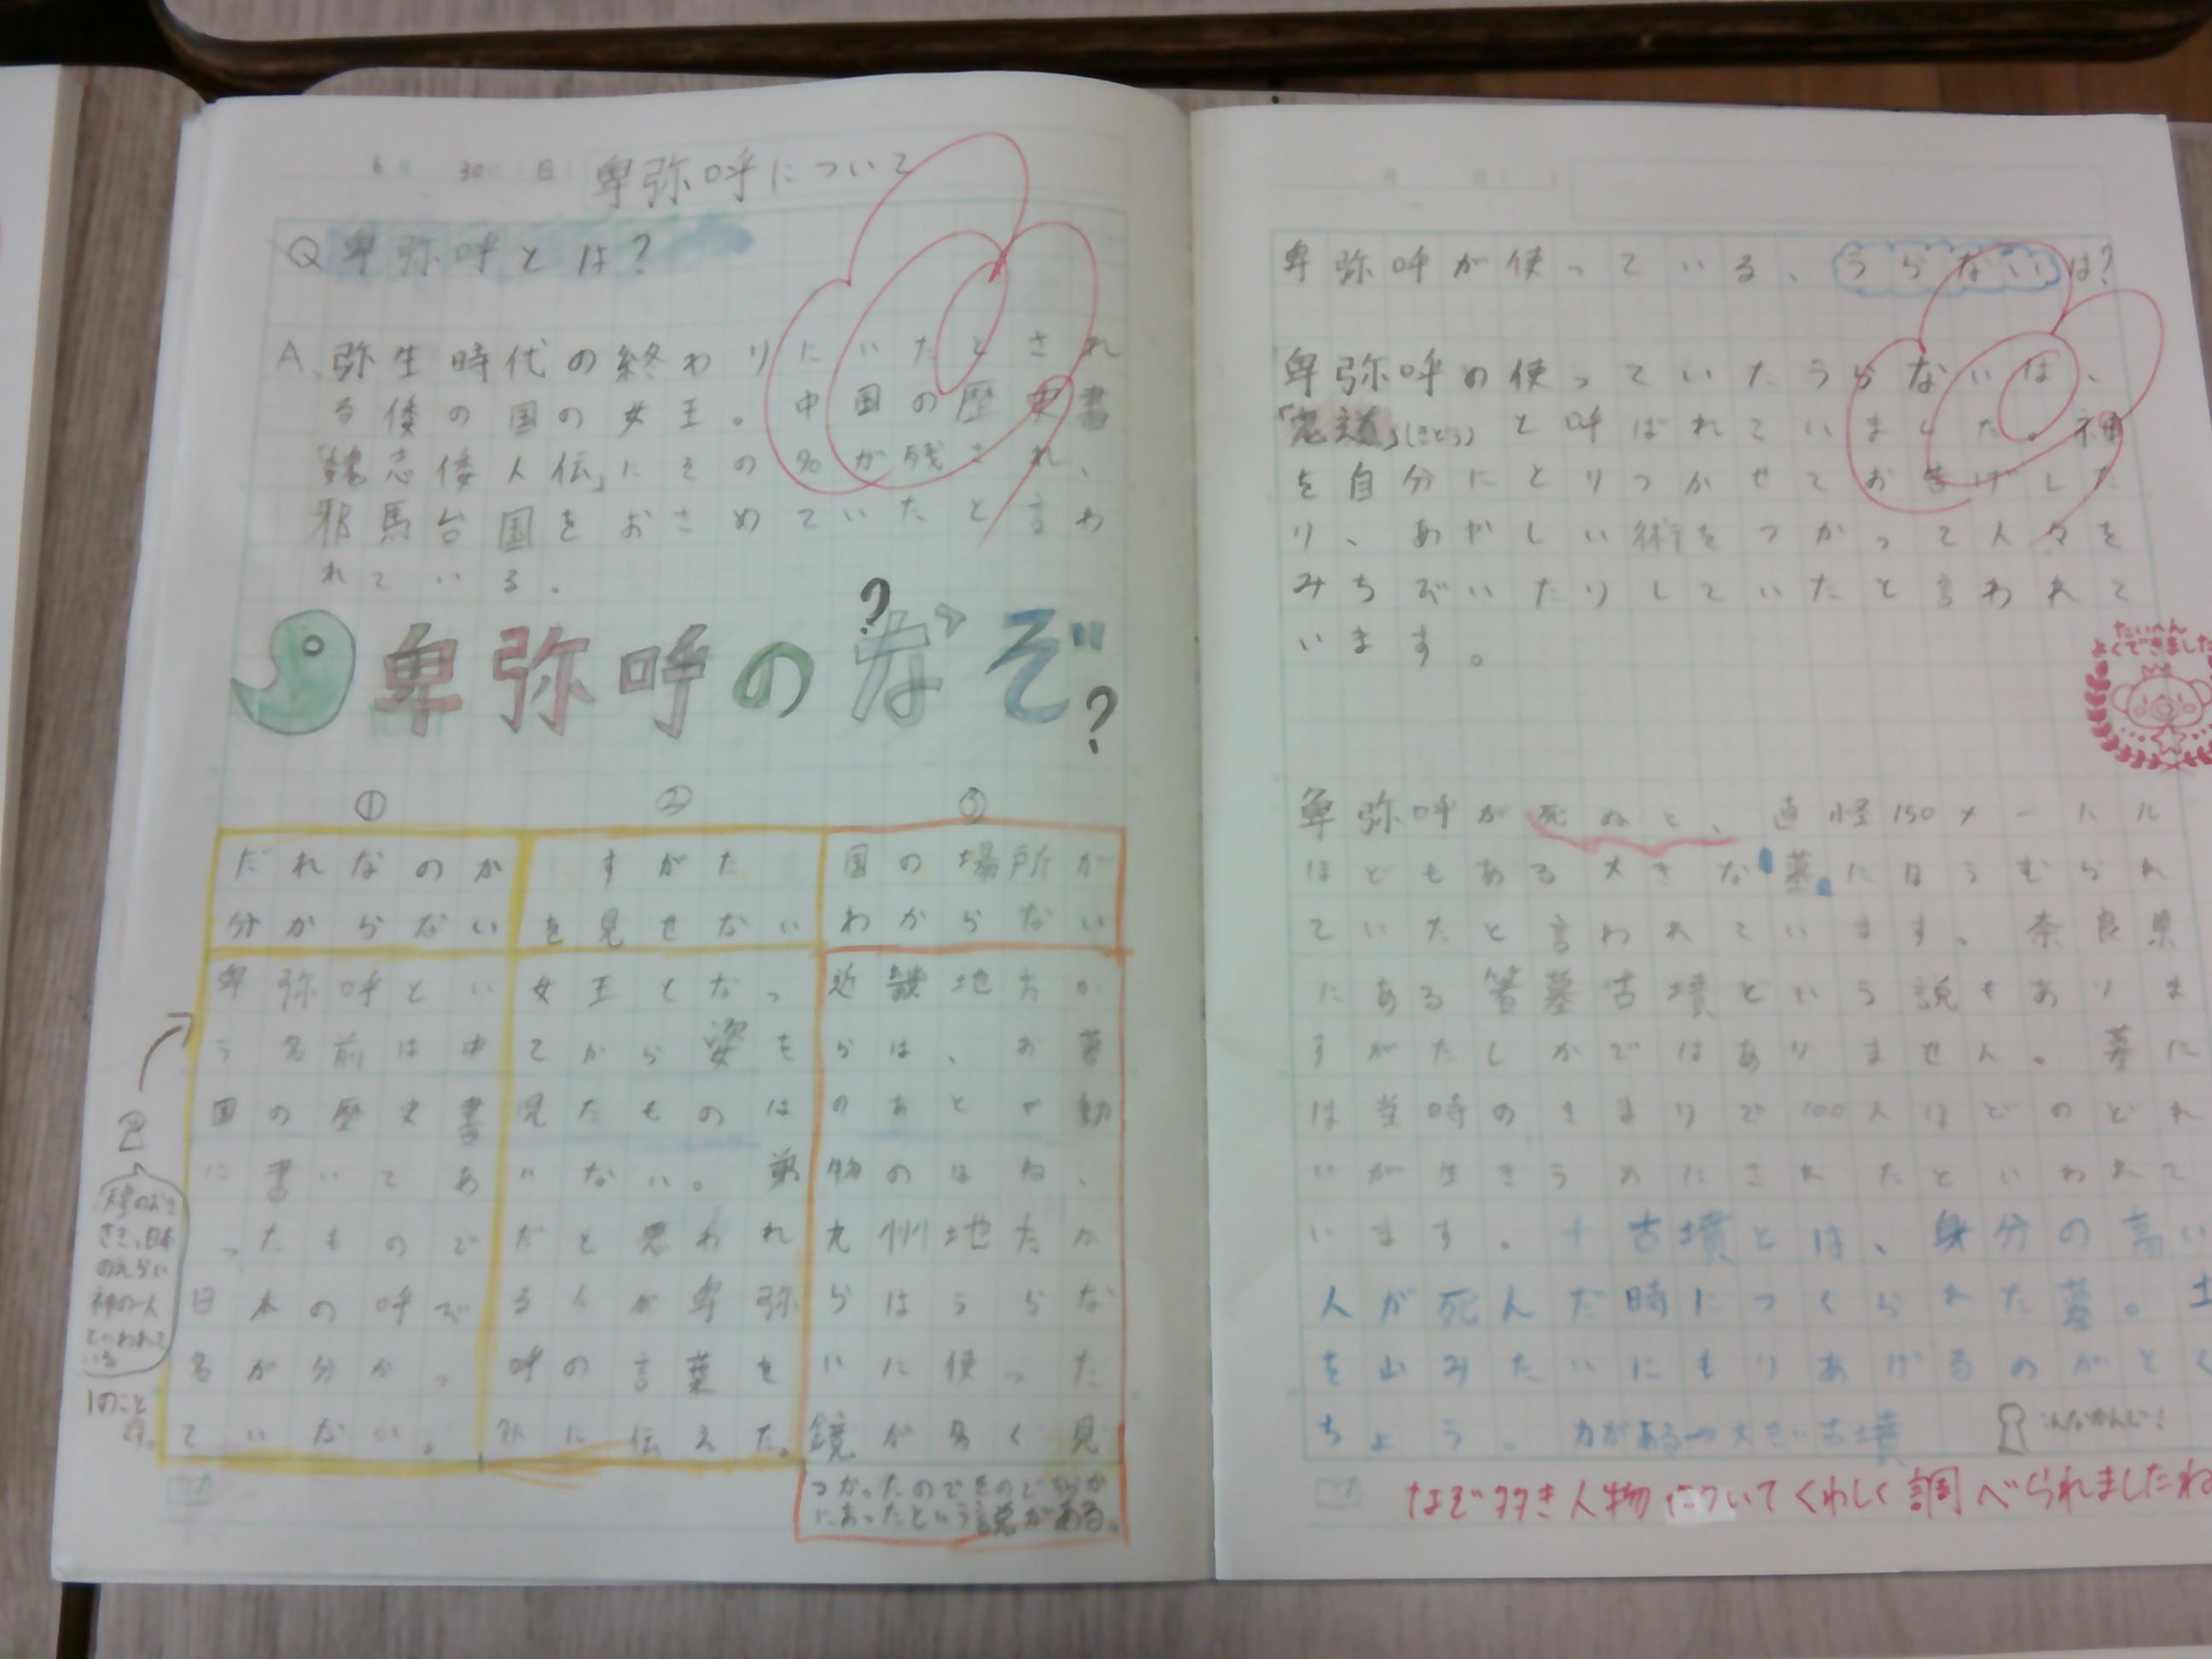 6月 30日
卑弥呼について
Q 卑弥呼とは?
A、弥生時代の終わりにいたとされ
る倭の国の女王。中国の歴史書
「魏志倭人伝」にその名が残され、
邪馬台国をおさめていたと言わ
れている。
卑弥呼のなぞ
? ?
①
だれなのか
分からない
卑弥呼とい
う名前は中
国の歴史書
に書いてあ
ったもので
日本の呼び
名が分かっ
ていない。
②
すがた
を見せない
女王となっ
てから姿を
見たものは
いない。弟
だと思われ
る人が卑弥
呼の言葉を
人に伝えた。
③
国の場所が
わからない
近畿地方か
らは、お墓
のあとや動
物のほね、
九州地方か
らはうらな
いに使った
鏡が多く見
つかったのでそのどちらか
にあったという説がある。
日本
のえらい
神の一人
といわれて
いる
卑弥呼が使っている、うらないは?
卑弥呼の使っていたうらないは、
「鬼道」(きどう)と呼ばれていました。神
を自分にとりつかせてお告げした
り、あやしい術をつかって人々を
みちびいたりしていたと言われて
います。
たいへん
よくできました
卑弥呼が死ぬと、直径150メートル
ほどもある大きな墓にほうむられ
ていたと言われています。奈良県
にある箸墓古墳という説もありま
すがたしかではありません。墓に
は当時のきまりで100人ほどのどれ
いが生きうめにされたといわれて
います。 古墳とは、身分の高い
人が死んだ時につくられた墓。土
を山みたいにもりあげるのがとく
ちょう。 力がある→大きい古墳
こんなかんじ!
なぞ多き人物についてくわしく調べられましたね